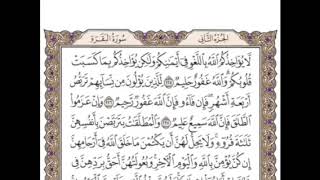 الجزء الثاني سورة البقرة
لَّا يُؤَاخِذُكُمُ ٱللَّهُ بِٱللَّغْوِ فِىٓ أَيْمَٰنِكُمْ وَلَٰكِن يُؤَاخِذُكُم بِمَا كَسَبَتْ
قُلُوبُكُمْ وَٱللَّهُ غَفُورٌ حَلِيمٌ ٢٢٥ لِّلَّذِينَ يُؤْلُونَ مِن نِّسَآئِهِمْ تَرَبُّصُ
أَرْبَعَةِ أَشْهُرٍ فَإِن فَآءُو فَإِنَّ ٱللَّهَ غَفُورٌ رَّحِيمٌ ٢٢٦ وَإِنْ عَزَمُوا۟
ٱلطَّلَٰقَ فَإِنَّ ٱللَّهَ سَمِيعٌ عَلِيمٌ ٢٢٧ وَٱلْمُطَلَّقَٰتُ يَتَرَبَّصْنَ بِأَنفُسِهِنَّ
ثَلَٰثَةَ قُرُوٓءٍ وَلَا يَحِلُّ لَهُنَّ أَن يَكْتُمْنَ مَا خَلَقَ ٱللَّهُ فِىٓ أَرْحَامِهِنَّ
إِن كُنَّ يُؤْمِنَّ بِٱللَّهِ وَٱلْيَوْمِ ٱلْءَاخِرِ وَبُعُولَتُهُنَّ أَحَقُّ بِرَدِّهِنَّ فِى